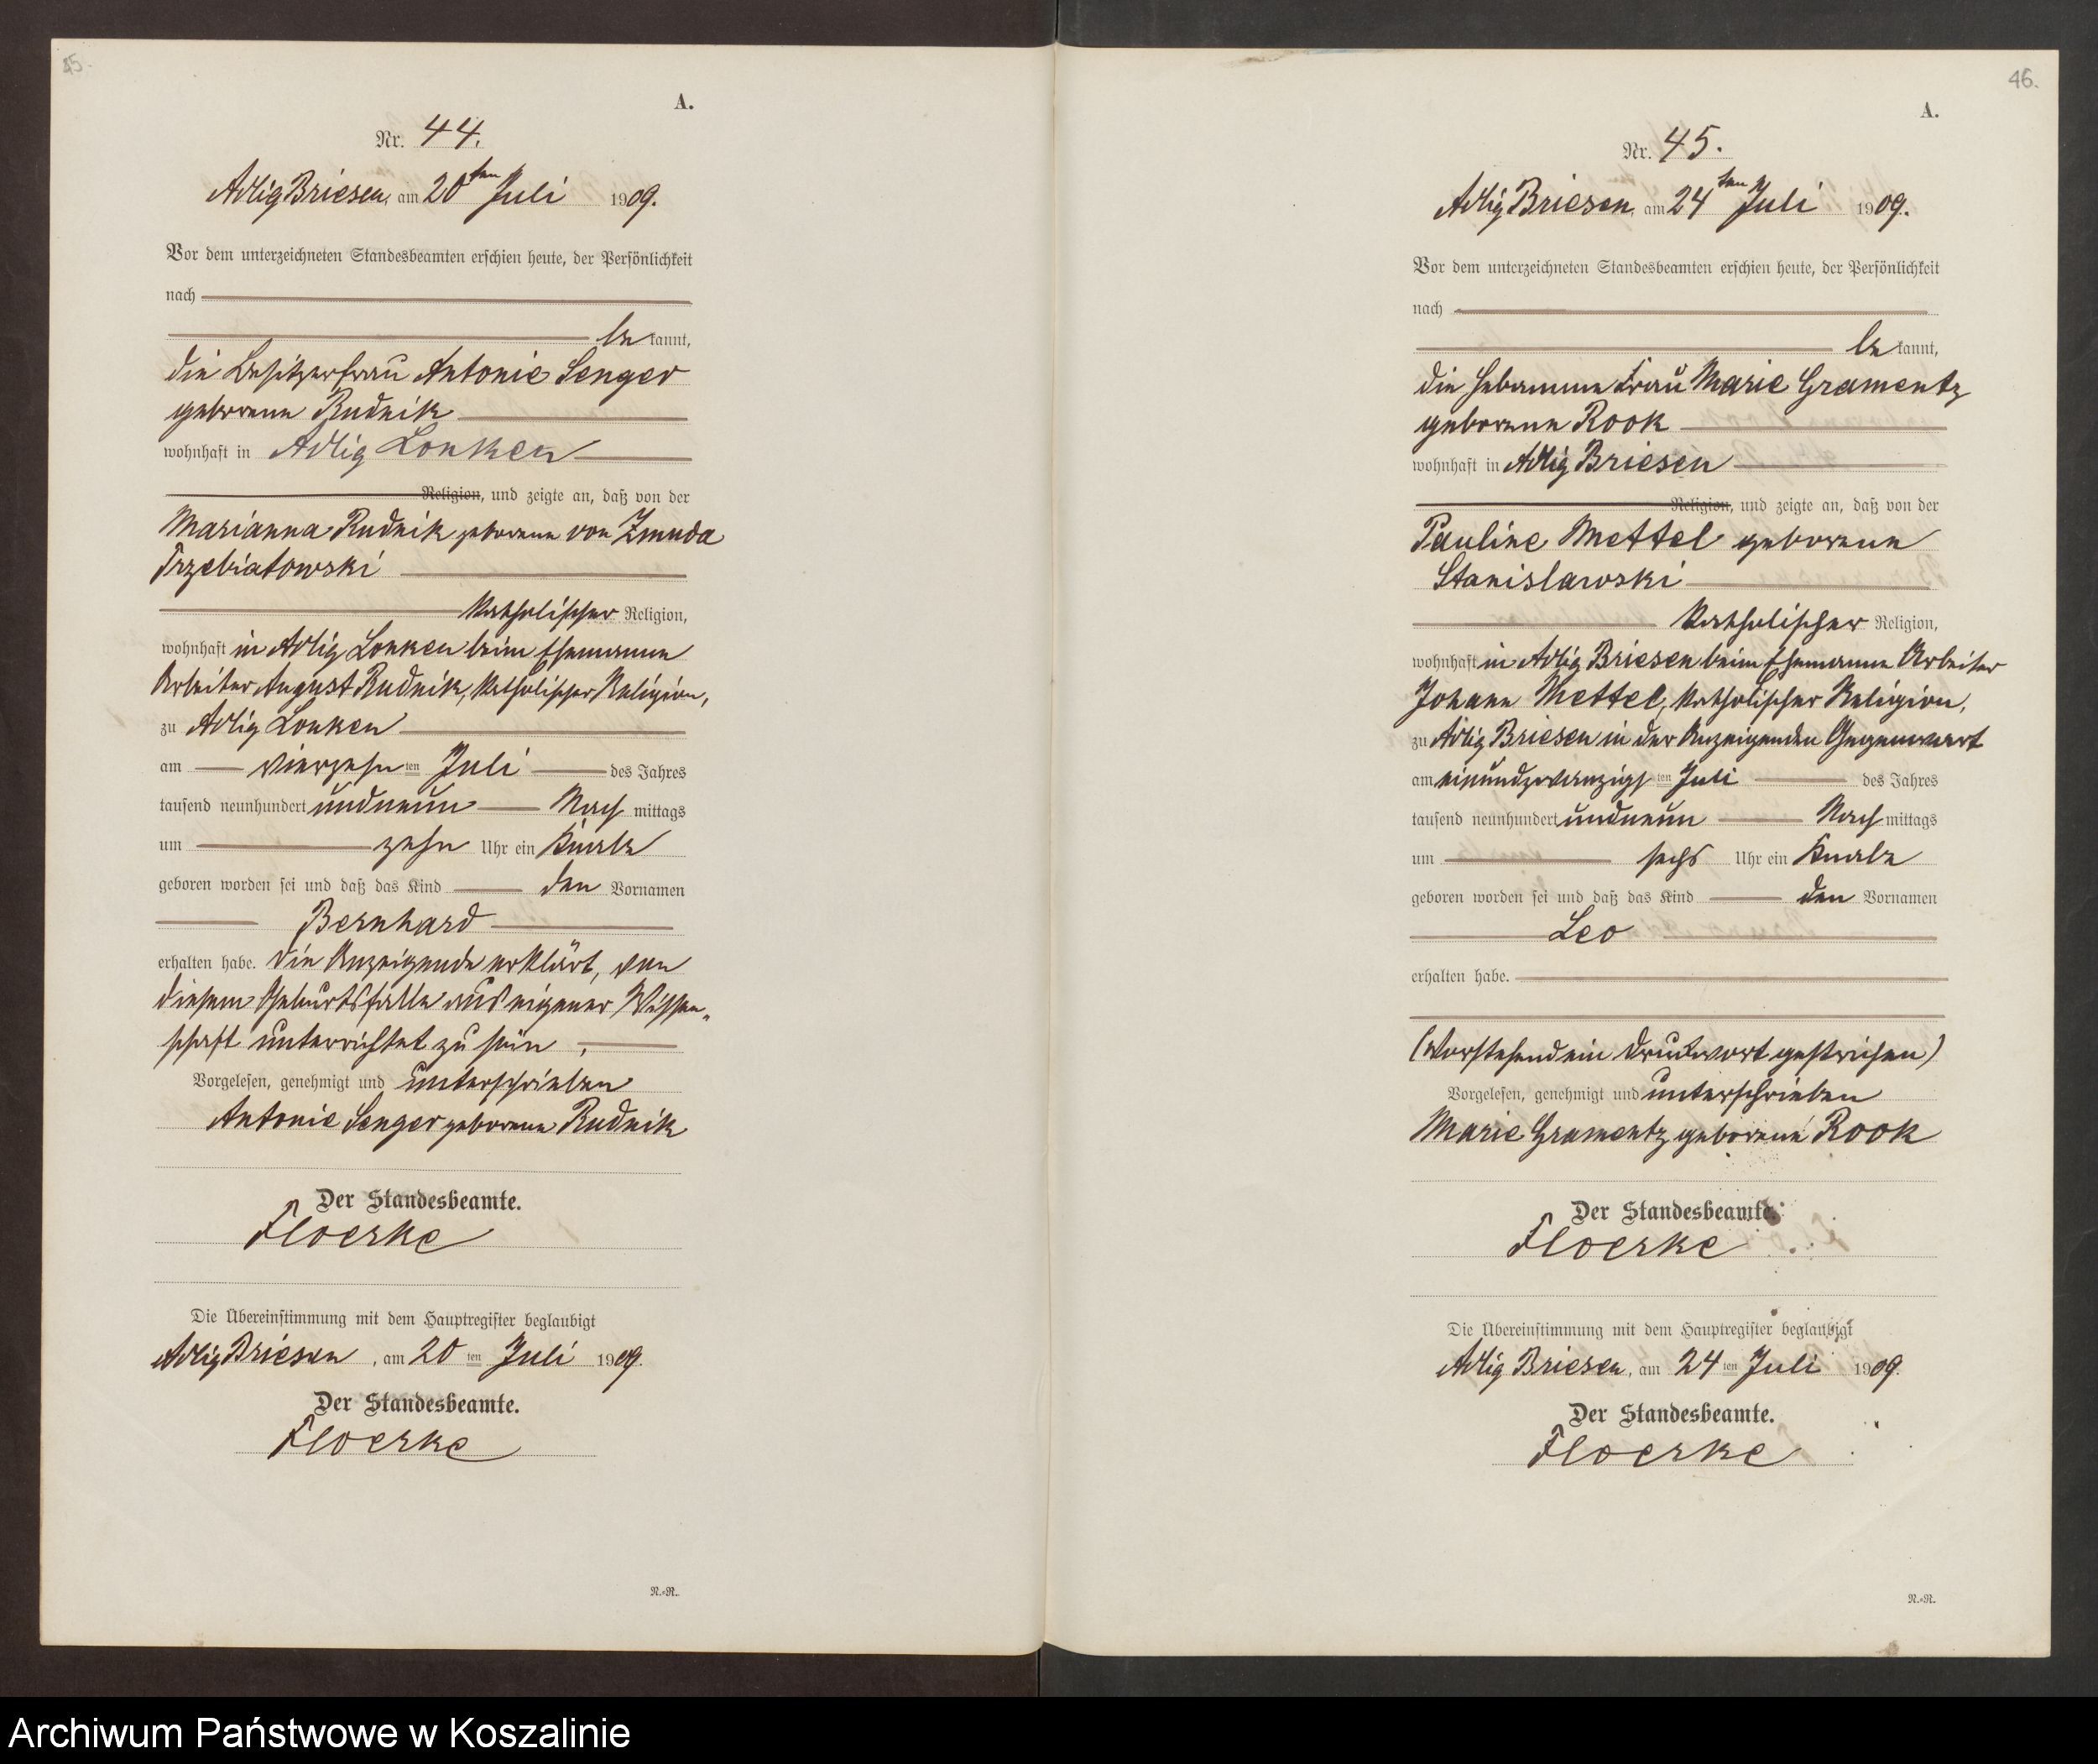 45.
A.
Nr. 44.
Adlig Briesen, am 20ten Juli 1909.
Vor dem unterzeichneten Standesbeamten erschien heute, der Persönlichkeit
nach
be kannt,
die Besitzerfrau Antonie Senger
geborene Rudnik
wohnhaft in Adlig Lonken
Religion, und zeigte an, daß von der
Marianna Rudnik geborene von Zmuda
Trzebiatowski
katholischer Religion,
wohnhaft in Adlig Lonken beim Ehemanne
Arbeiter August Rudnik, katholischer Religion,
zu Adlig Lonken
am vierzehn ten Juli des Jahres
tausend neunhundert undneun Nach mittags
um zehn Uhr ein Knabe
geboren worden sei und daß das Kind den Vornamen
Bernhard
erhalten habe. Die Anzeigende erklärt, von
diesem Geburtsfalle aus eigener Wissen-
schaft unterrichtet zu sein.
Vorgelesen, genehmigt und unterschrieben
Antonie Senger geborene Rudnik
Der Standesbeamte.
Floerke
Die Übereinstimmung mit dem Hauptregister beglaubigt
Adlig Briesen, am 20 ten Juli 1909.
Der Standesbeamte.
Floerke
N.=R.
46.
A.
Nr. 45.
Adlig Briesen, am 24ten Juli 1909.
Vor dem unterzeichneten Standesbeamten erschien heute, der Persönlichkeit
nach
be kannt,
die Hebamme Frau Marie Gramentz
geborene Rook
wohnhaft in Adlig Briesen
Religion, und zeigte an, daß von der
Pauline Mettel geborene
Stanislawski
katholischer Religion,
wohnhaft in Adlig Briesen beim Ehemanne Arbeiter
Johann Mettel, katholischer Religion,
zu Adlig Briesen in der Anzeigenden Gegenwart
am einundzwanzigs ten Juli des Jahres
tausend neunhundert undneun Nach mittags
um sechs Uhr ein Knabe
geboren worden sei und daß das Kind den Vornamen
Leo
erhalten habe.
(Vorstehend ein Druckwort gestrichen)
Vorgelesen, genehmigt und unterschrieben
Marie Gramentz geborene Rook
Der Standesbeamte.
Floerke
Die Übereinstimmung mit dem Hauptregister beglaubigt
Adlig Briesen, am 24 ten Juli 1909.
Der Standesbeamte.
Floerke
N.=R.
Archiwum Państwowe w Koszalinie